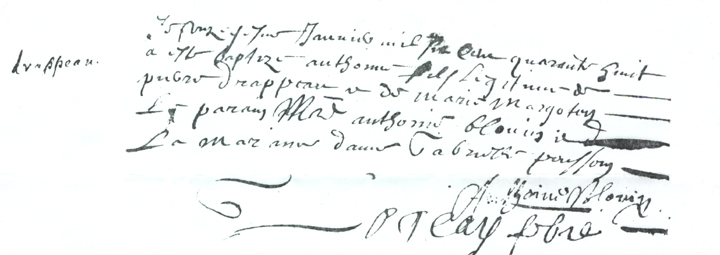 drappeau.
Le onziesme Janvier mil six cens quarante huit
a este baptize anthoine fils legitime de
pierre drappeau et de marie margoton
Le parain Mre anthoine blouin
La maraine dame Gabrielle poisson
Anthoine Blouin